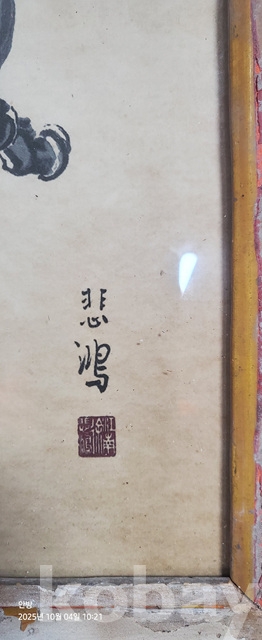 悲
鴻
안방
2025년 10월 04일 10:21
kobay